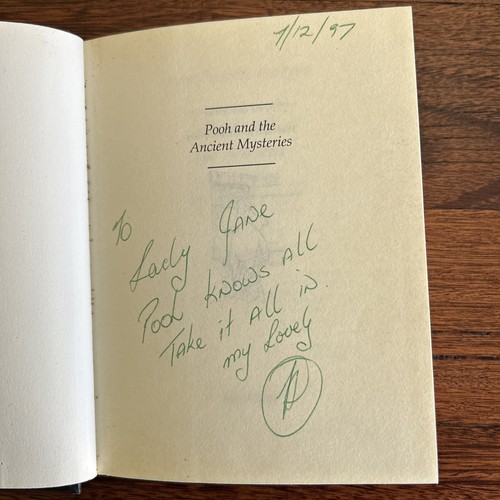 7/12/97
Pooh and the
Ancient Mysteries
To
Lady Jane
Pooh knows all
Take it all in.
my lovely